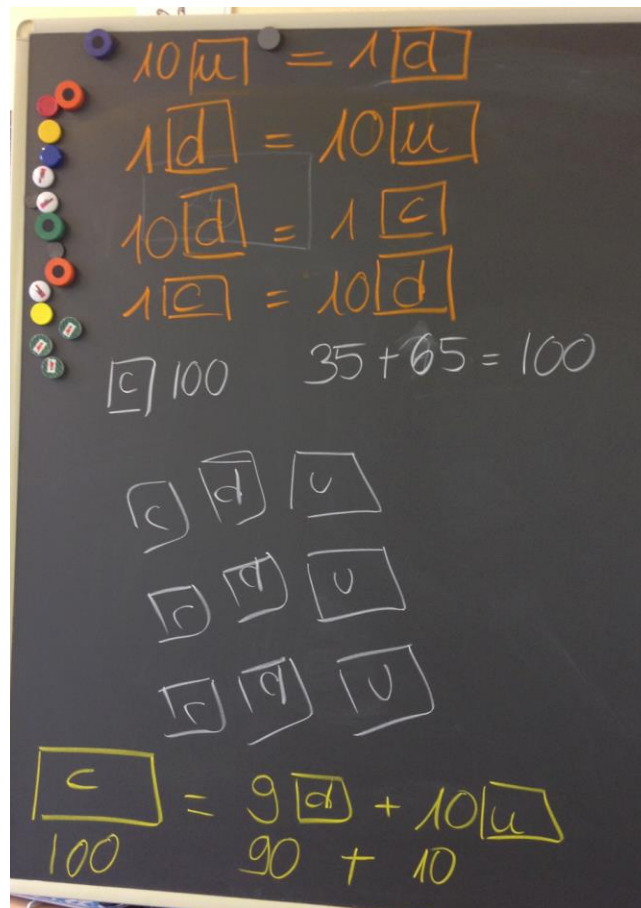 10 u = 1 d
1 d = 10 u
10 d = 1 c
1 c = 10 d
c 100 35 + 65 = 100
c d u
c d u
c d u
c = 9 d + 10 u
100 90 + 10